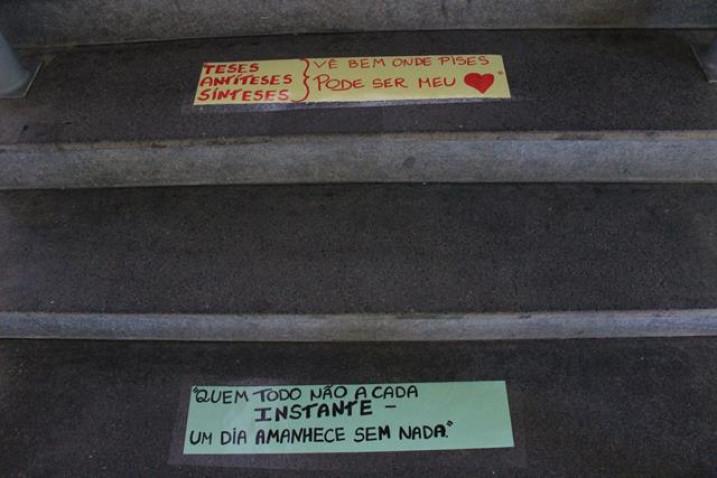 TESES } VÊ BEM ONDE PISES
ANTÍTESES } PODE SER MEU ♥
SÍNTESES }
"QUEM TODO NÃO A CADA
INSTANTE -
UM DIA AMANHECE SEM NADA."